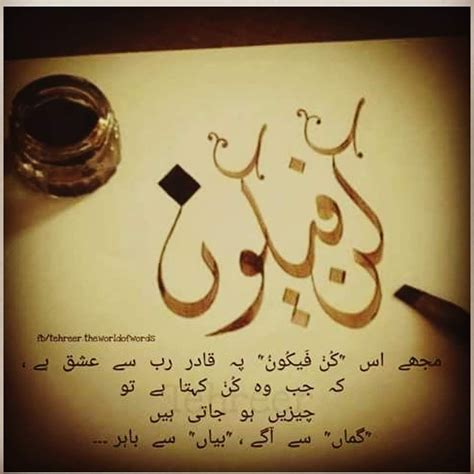 کن فیکون
fb/tehreer.theworldofwords
مجھے اس "کُنْ فَیَکُونُ" پہ قادر رب سے عشق ہے ،
کہ جب وہ کُنْ کہتا ہے تو
چیزیں ہو جاتی ہیں
"گماں" سے آگے ، "بیاں" سے باہر ...
Tehreer